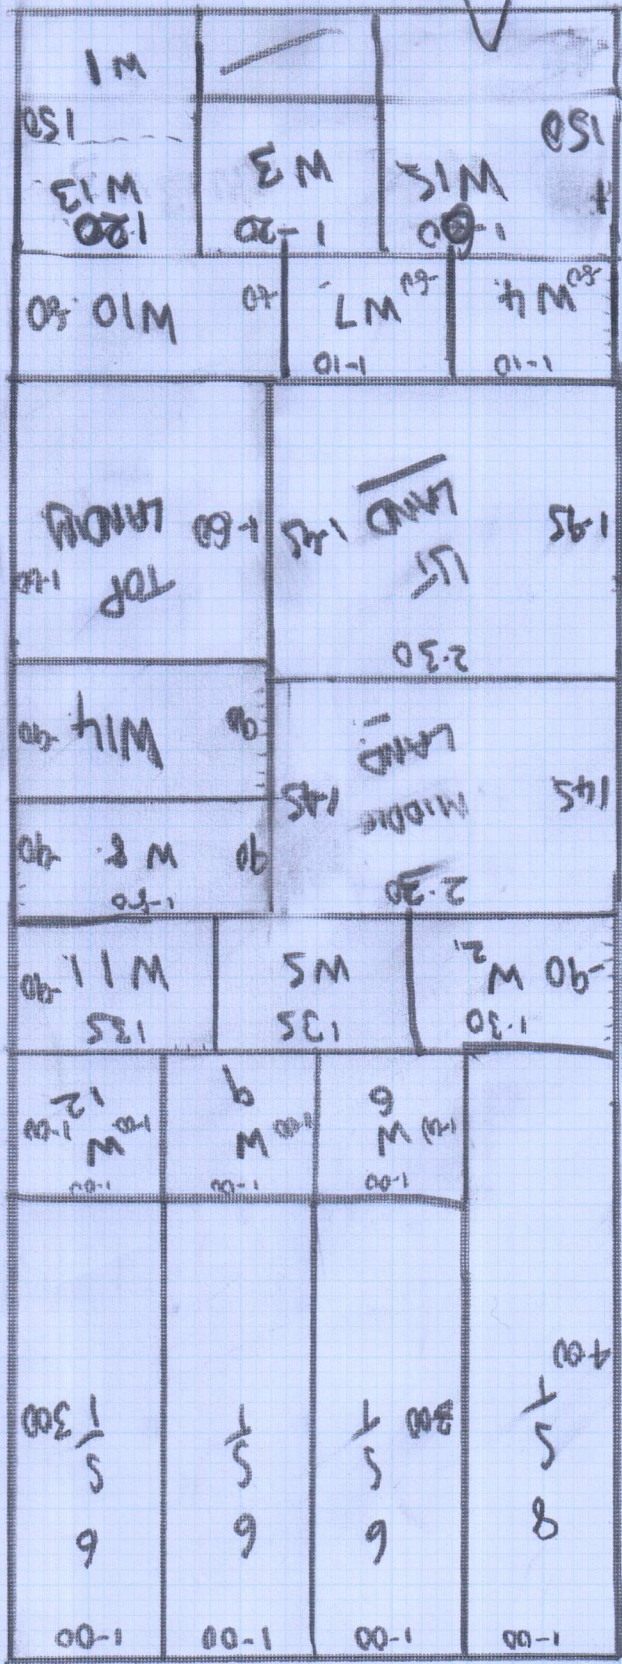 1-00
1-00
1-00
1-00
8
6
6
6
S/T
S/T
S/T
S/T
400
300
300
1-00
1-00
1-00
W
6
1-00
W
9
1-00
W
12
1-00
1-00
1.30
135
135
-90
W2
W5
W11
-90
2.30
1-80
145
MIDDLE
LAND
1-45
90
W8
-90
90
W14
-90
2.30
1-95
1ST
LAND
1-95
TOP
LANDING
1-60
1-60
1-10
1-10
80
W4
-80
W7
80
W10
80
1-20
120
W15
W3
W13
150
150
W1